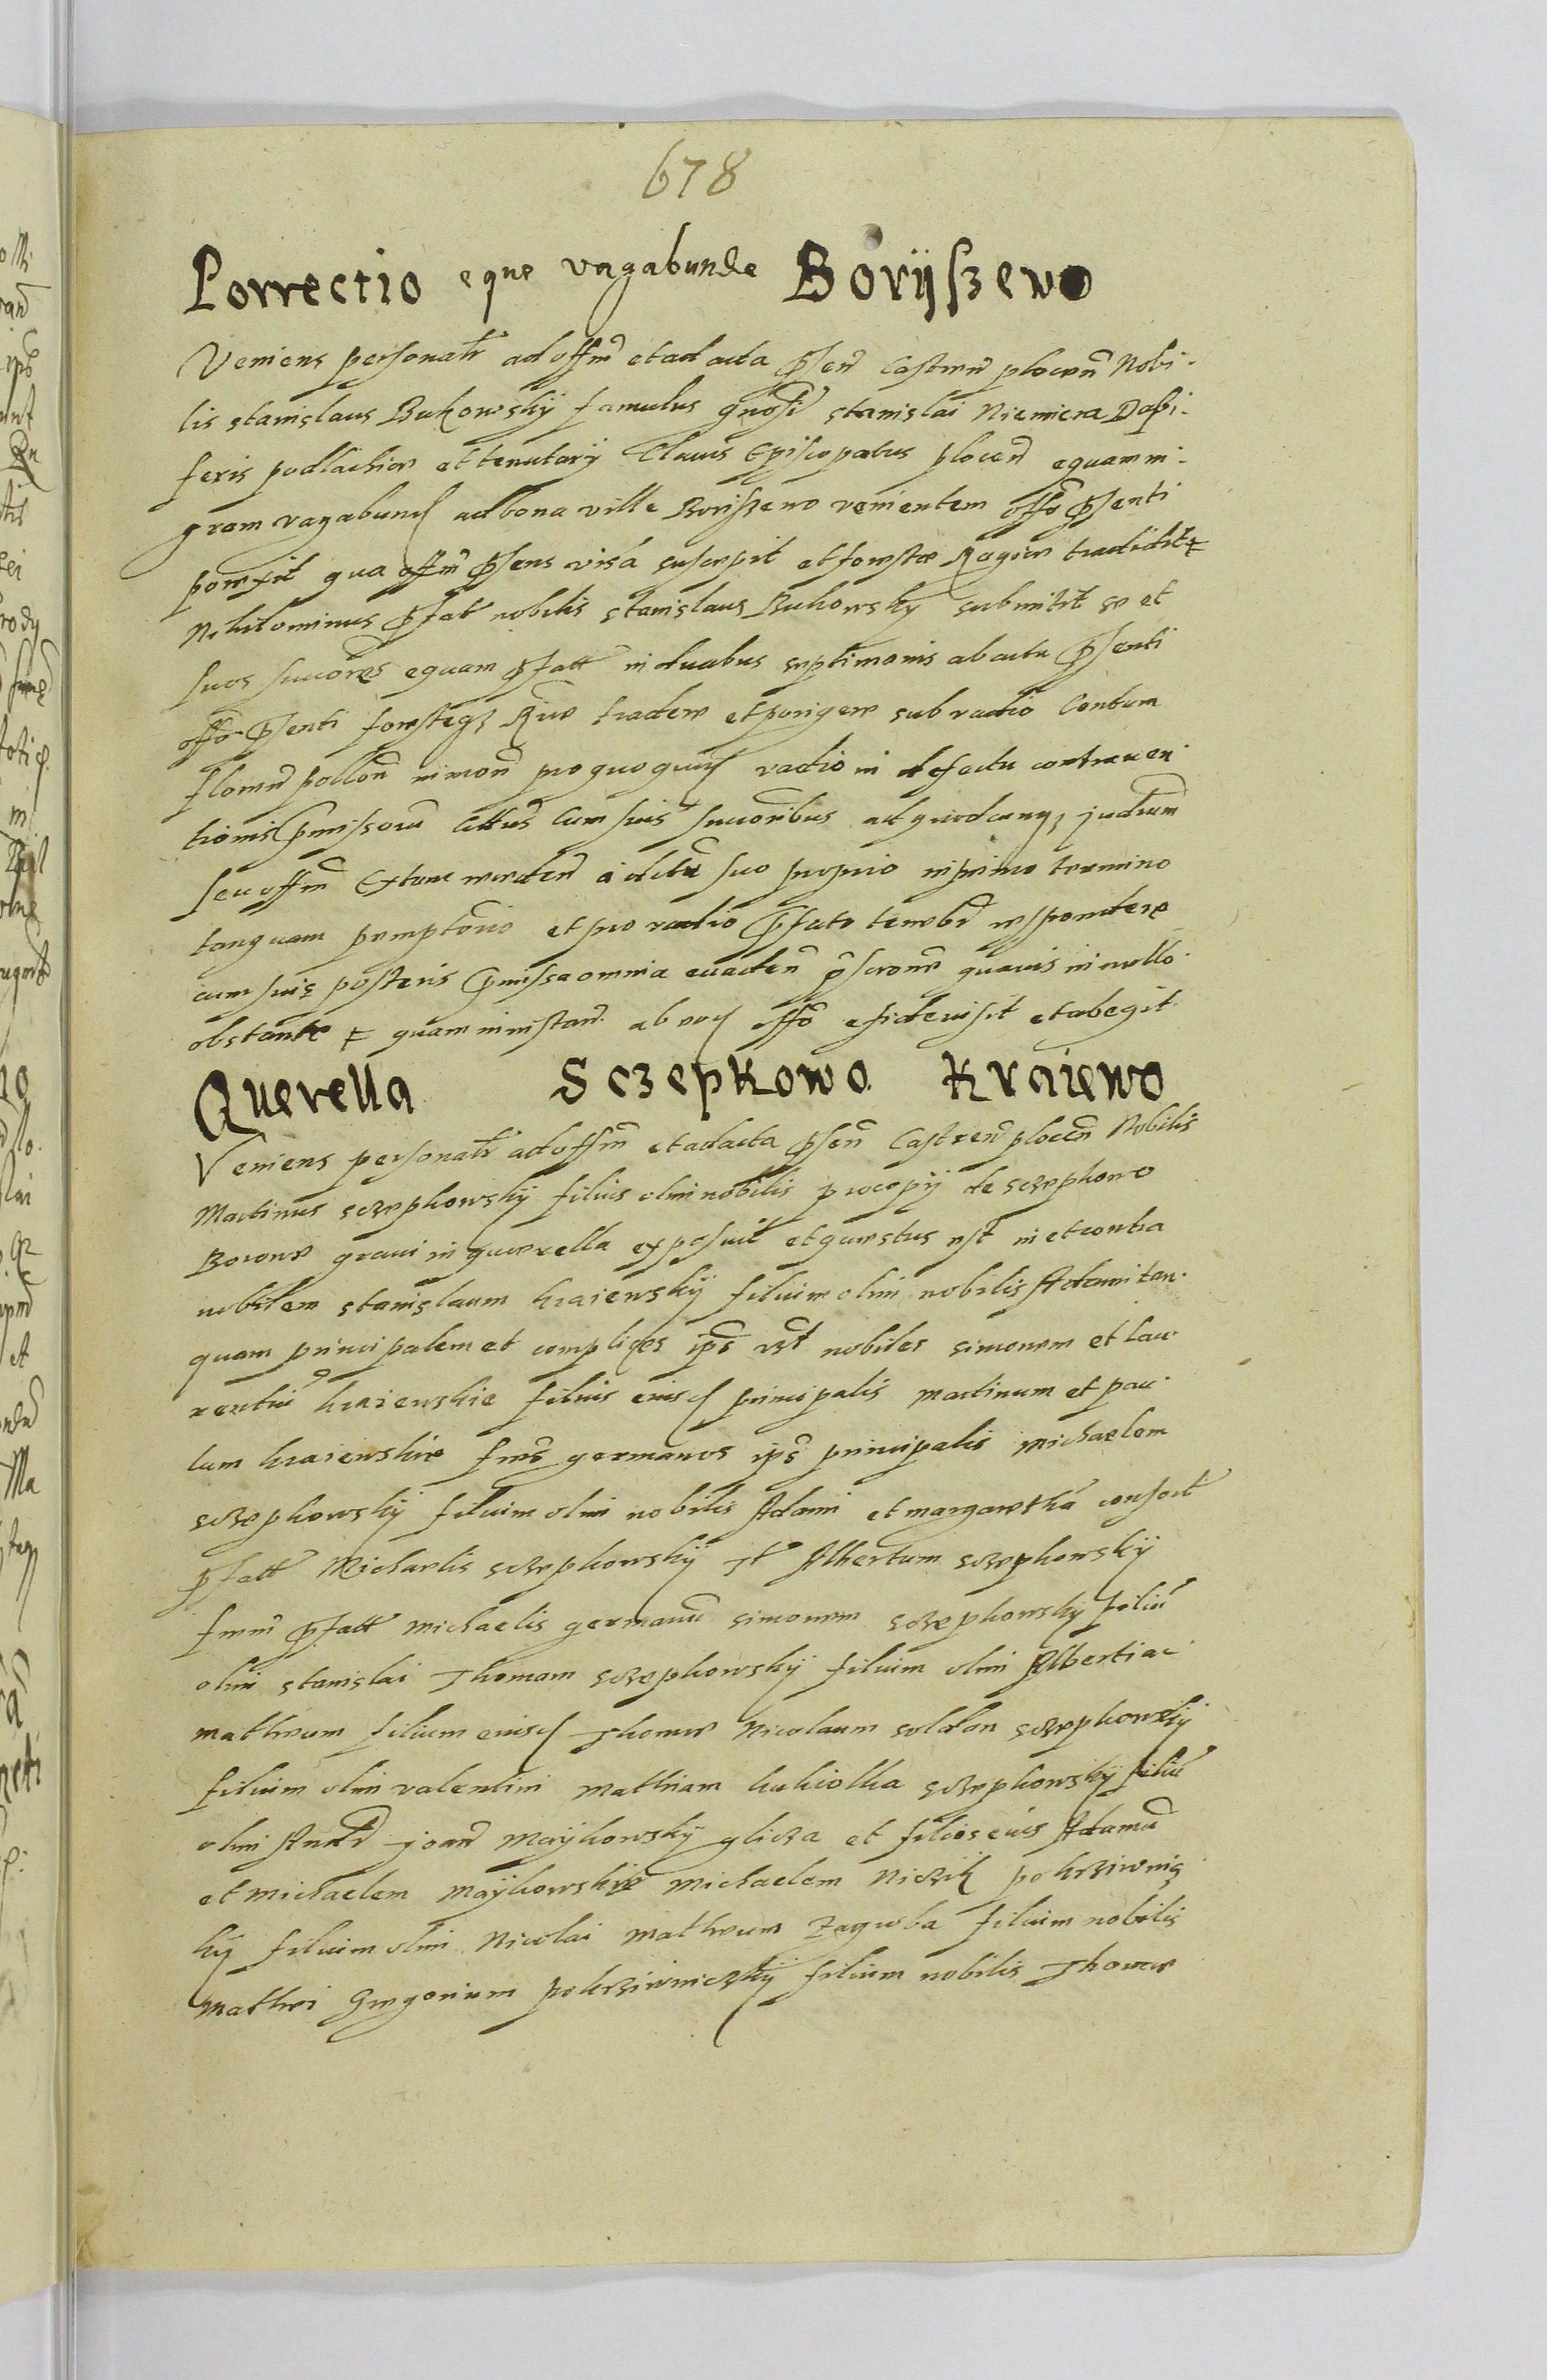 678
Porrectio eque vagabunde Borijszewo
Veniens personalr ad offm et ad acta psen Castren plocen Nobi-
lis stanislaus Bukowskij famulus gnosi stanislai Niemiera Dapi-
feris podlachiae et tenutarij Clavis Episcopatus plocen equam ni-
gram vagabund ad bona ville Boriszewo venientem offo psenti
porexit qua offm psens visa suscepit et forestae Regiae tradidit
Nihilominus pfat nobilis stanislaus Bukowsky submitit se et
suos succores equam pfatt in duabus septimanis ab actu psenti
offo psenti forestaeq Rgiae tradere et porigere sub vadio Centum
florenor pollon in mon pro quoquid vadio in defectu contraven-
tionis pmissorum Cittus Cum suis succoribus ad quodcunq judicum
seu offm Extunc in primo termino
tanquam peremptorio et pro vadio pfato tenebr respondere
cum suis posteris pmissa omnia evaden pscrone quavis in nullo
obstante quam ministan ab offo et abegit
Querella Sczepkowo Kraiewo
Veniens personalr ad offm et ad acta psen Castren plocen Nobilis
Martinus sczepkowskij filius olim nobilis procopij de sczepkowo
Borowe gravi in querella exposuit et questus est in et contra
nobilem stanislaum kraiewskij filium olim nobilis Adami tan-
quam principalem et complices ips vst nobiles simonem et lau-
rentiu kraiewskie filios eiusd principalis martinum et pau-
lum kraiewskie fres germanos ips principalis michaelem
sczepkowskij filium olim nobilis Adami et margaretha consort
pfatt Michaelis sczepkowskij It Albertum sczepkowskij
frem pfatt michaelis germanu simonem sczepkowsky filiu
olim stanislai Thomam sczepkowskij filium olim Alberti ac
matheum filium eiusd Thomae Nicolaum soldan sczepkowskij
filium olim valentini mathiam kukiolka sczepkowskij filiu
olim Andr joan Maijkowskij glicza et filios eius Adamu
et michaelem maijkowskie michaelem Niczik pokrziwnis
kij filium olim Nicolai matheum Zagroba filium nobilis
Mathei Gregorium pokrziwniczkij filium nobilis Thomae